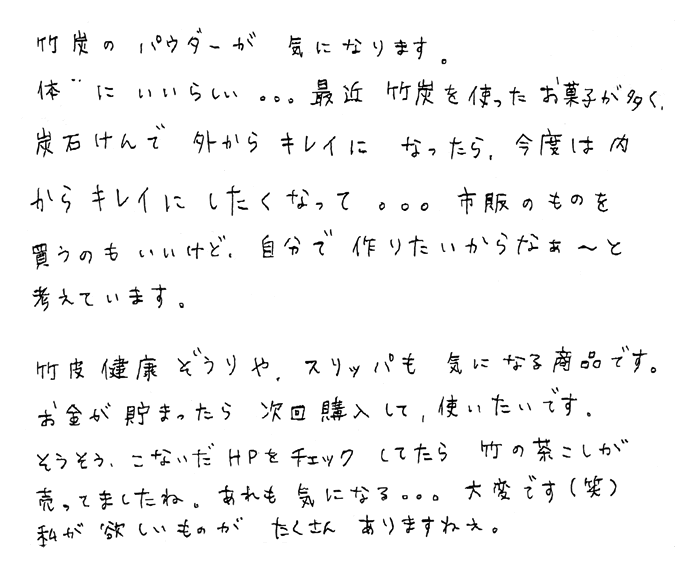 竹炭の パウダーが 気になります。
体¨にいいらしい。。。最近 竹炭を使ったお菓子が多く、
炭石けんで 外から キレイに なったら、今度は内
からキレイに したくなって 。。。市販のものを
買うのもいいけど、自分で 作りたいからなぁ～と
考えています。
竹皮健康ぞうりや、スリッパも 気になる商品です。
お金が貯まったら 次回購入して、使いたいです。
そうそう、こないだHPをチェックしてたら 竹の茶こしが
売ってましたね。あれも気になる。。。大変です(笑)
私が欲しいものが たくさん ありますねぇ。